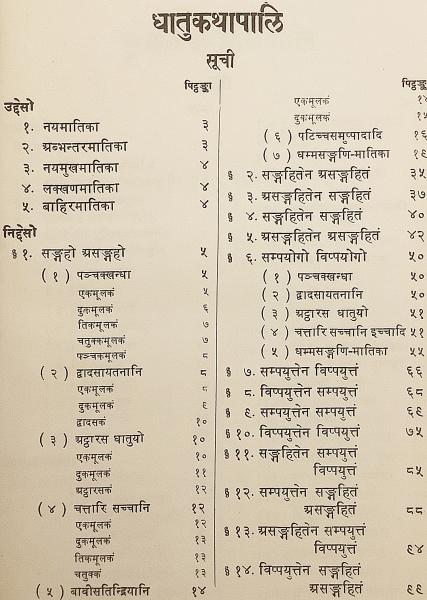 धातुकथापालि
सूची
पिट्ठङ्का
उद्देसो
१. नयमातिका ३
२. अब्भन्तरमातिका ३
३. नयमुखमातिका ४
४. लक्खणमातिका ४
५. बाहिरमातिका ४
निद्देसो
§ १. सङ्गहो असङ्गहो ५
( १ ) पञ्चक्खन्धा ५
एकमूलकं ५
दुकमूलकं ६
तिकमूलकं ७
चतुक्कमूलकं ७
पञ्चकमूलकं ८
( २ ) द्वादसायतनानि ८
एकमूलकं ८
दुकमूलकं ९
द्वादसकं १०
( ३ ) अट्ठारस धातुयो १०
एकमूलकं १०
दुकमूलकं ११
अट्ठारसकं १२
( ४ ) चत्तारि सच्चानि १२
एकमूलकं १२
दुकमूलकं १३
तिकमूलकं १३
चतुक्कं १३
( ५ ) बावीसतिन्द्रियानि १४
पिट्ठङ्का
एकमूलकं १४
दुकमूलकं १५
( ६ ) पटिच्चसमुप्पादादि १६
( ७ ) धम्मसङ्गणि-मातिका १९
§ २. सङ्गहितेन असङ्गहितं ३५
§ ३. असङ्गहितेन सङ्गहितं ३७
§ ४. सङ्गहितेन सङ्गहितं ४०
§ ५. असङ्गहितेन असङ्गहितं ४२
§ ६. सम्पयोगो विप्पयोगो ५०
( १ ) पञ्चक्खन्धा ५०
( २ ) द्वादसायतनानि ५०
( ३ ) अट्ठारस धातुयो ५१
( ४ ) चत्तारि सच्चानि इच्चादि ५१
( ५ ) धम्मसङ्गणि-मातिका ५५
§ ७. सम्पयुत्तेन विप्पयुत्तं ६६
§ ८. विप्पयुत्तेन सम्पयुत्तं ६८
§ ९. सम्पयुत्तेन सम्पयुत्तं ६९
§ १०. विप्पयुत्तेन विप्पयुत्तं ७५
§ ११. सङ्गहितेन सम्पयुत्तं
विप्पयुत्तं ८५
§ १२. सम्पयुत्तेन सङ्गहितं
असङ्गहितं ८८
§ १३. असङ्गहितेन सम्पयुत्तं
विप्पयुत्तं ९४
§ १४. विप्पयुत्तेन सङ्गहितं
असङ्गहितं ९९